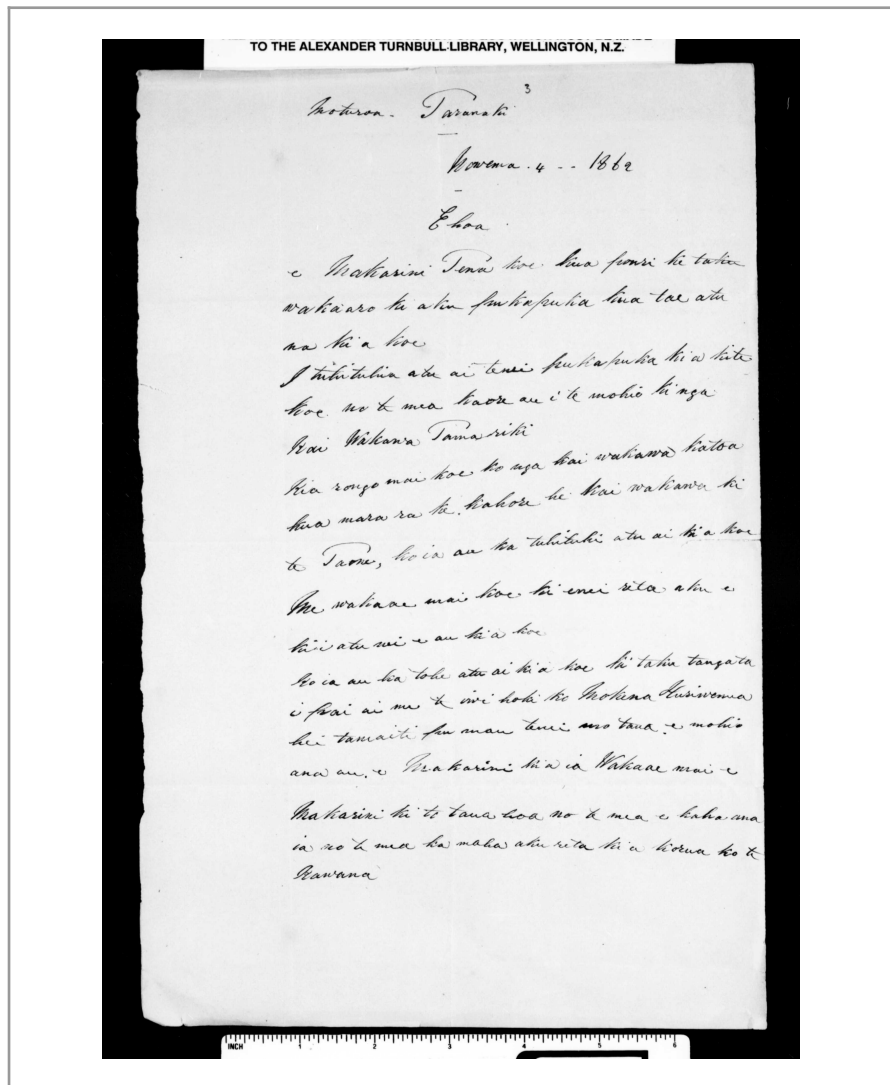 TO THE ALEXANDER TURNBULL LIBRARY, WELLINGTON, N.Z.
3
Moturoa. Taranaki
Nowema. 4 -- 1862
E hoa.
e Makarini Tená koe kua pouri ki taku
wakaaro ki aku pukapuka kua tae atu
na ki a koe
I tuhituhia atu ai tenei pukapuka ki a kite
koe no te mea kaore au i te mohio ki nga
Kai Wakawa Tamariki
Kia rongo mai koe ko nga kai wakawa katoa
kua mara ra ke. kahore he kai wakawa ki
te Taone, koia au ka tuhituhi atu ai ki a koe
Me wakaae mai koe ki enei rita aku e
kii atu nei e au ki a koe
Koia au ka tohe atu ai ki a koe ki taku tangata
i pai ai me te iwi hoki ko Mokena
hei tamaiti pu mau tenei mo taua. e mohio
ana au. e Makarini ki a ia Wakaae mai e
Makarini ki to taua hoa no te mea e kaha ana
ia no te mea ka maha aku rita ki a korua ko te
Kawana
INCH 1 2 3 4 5 6